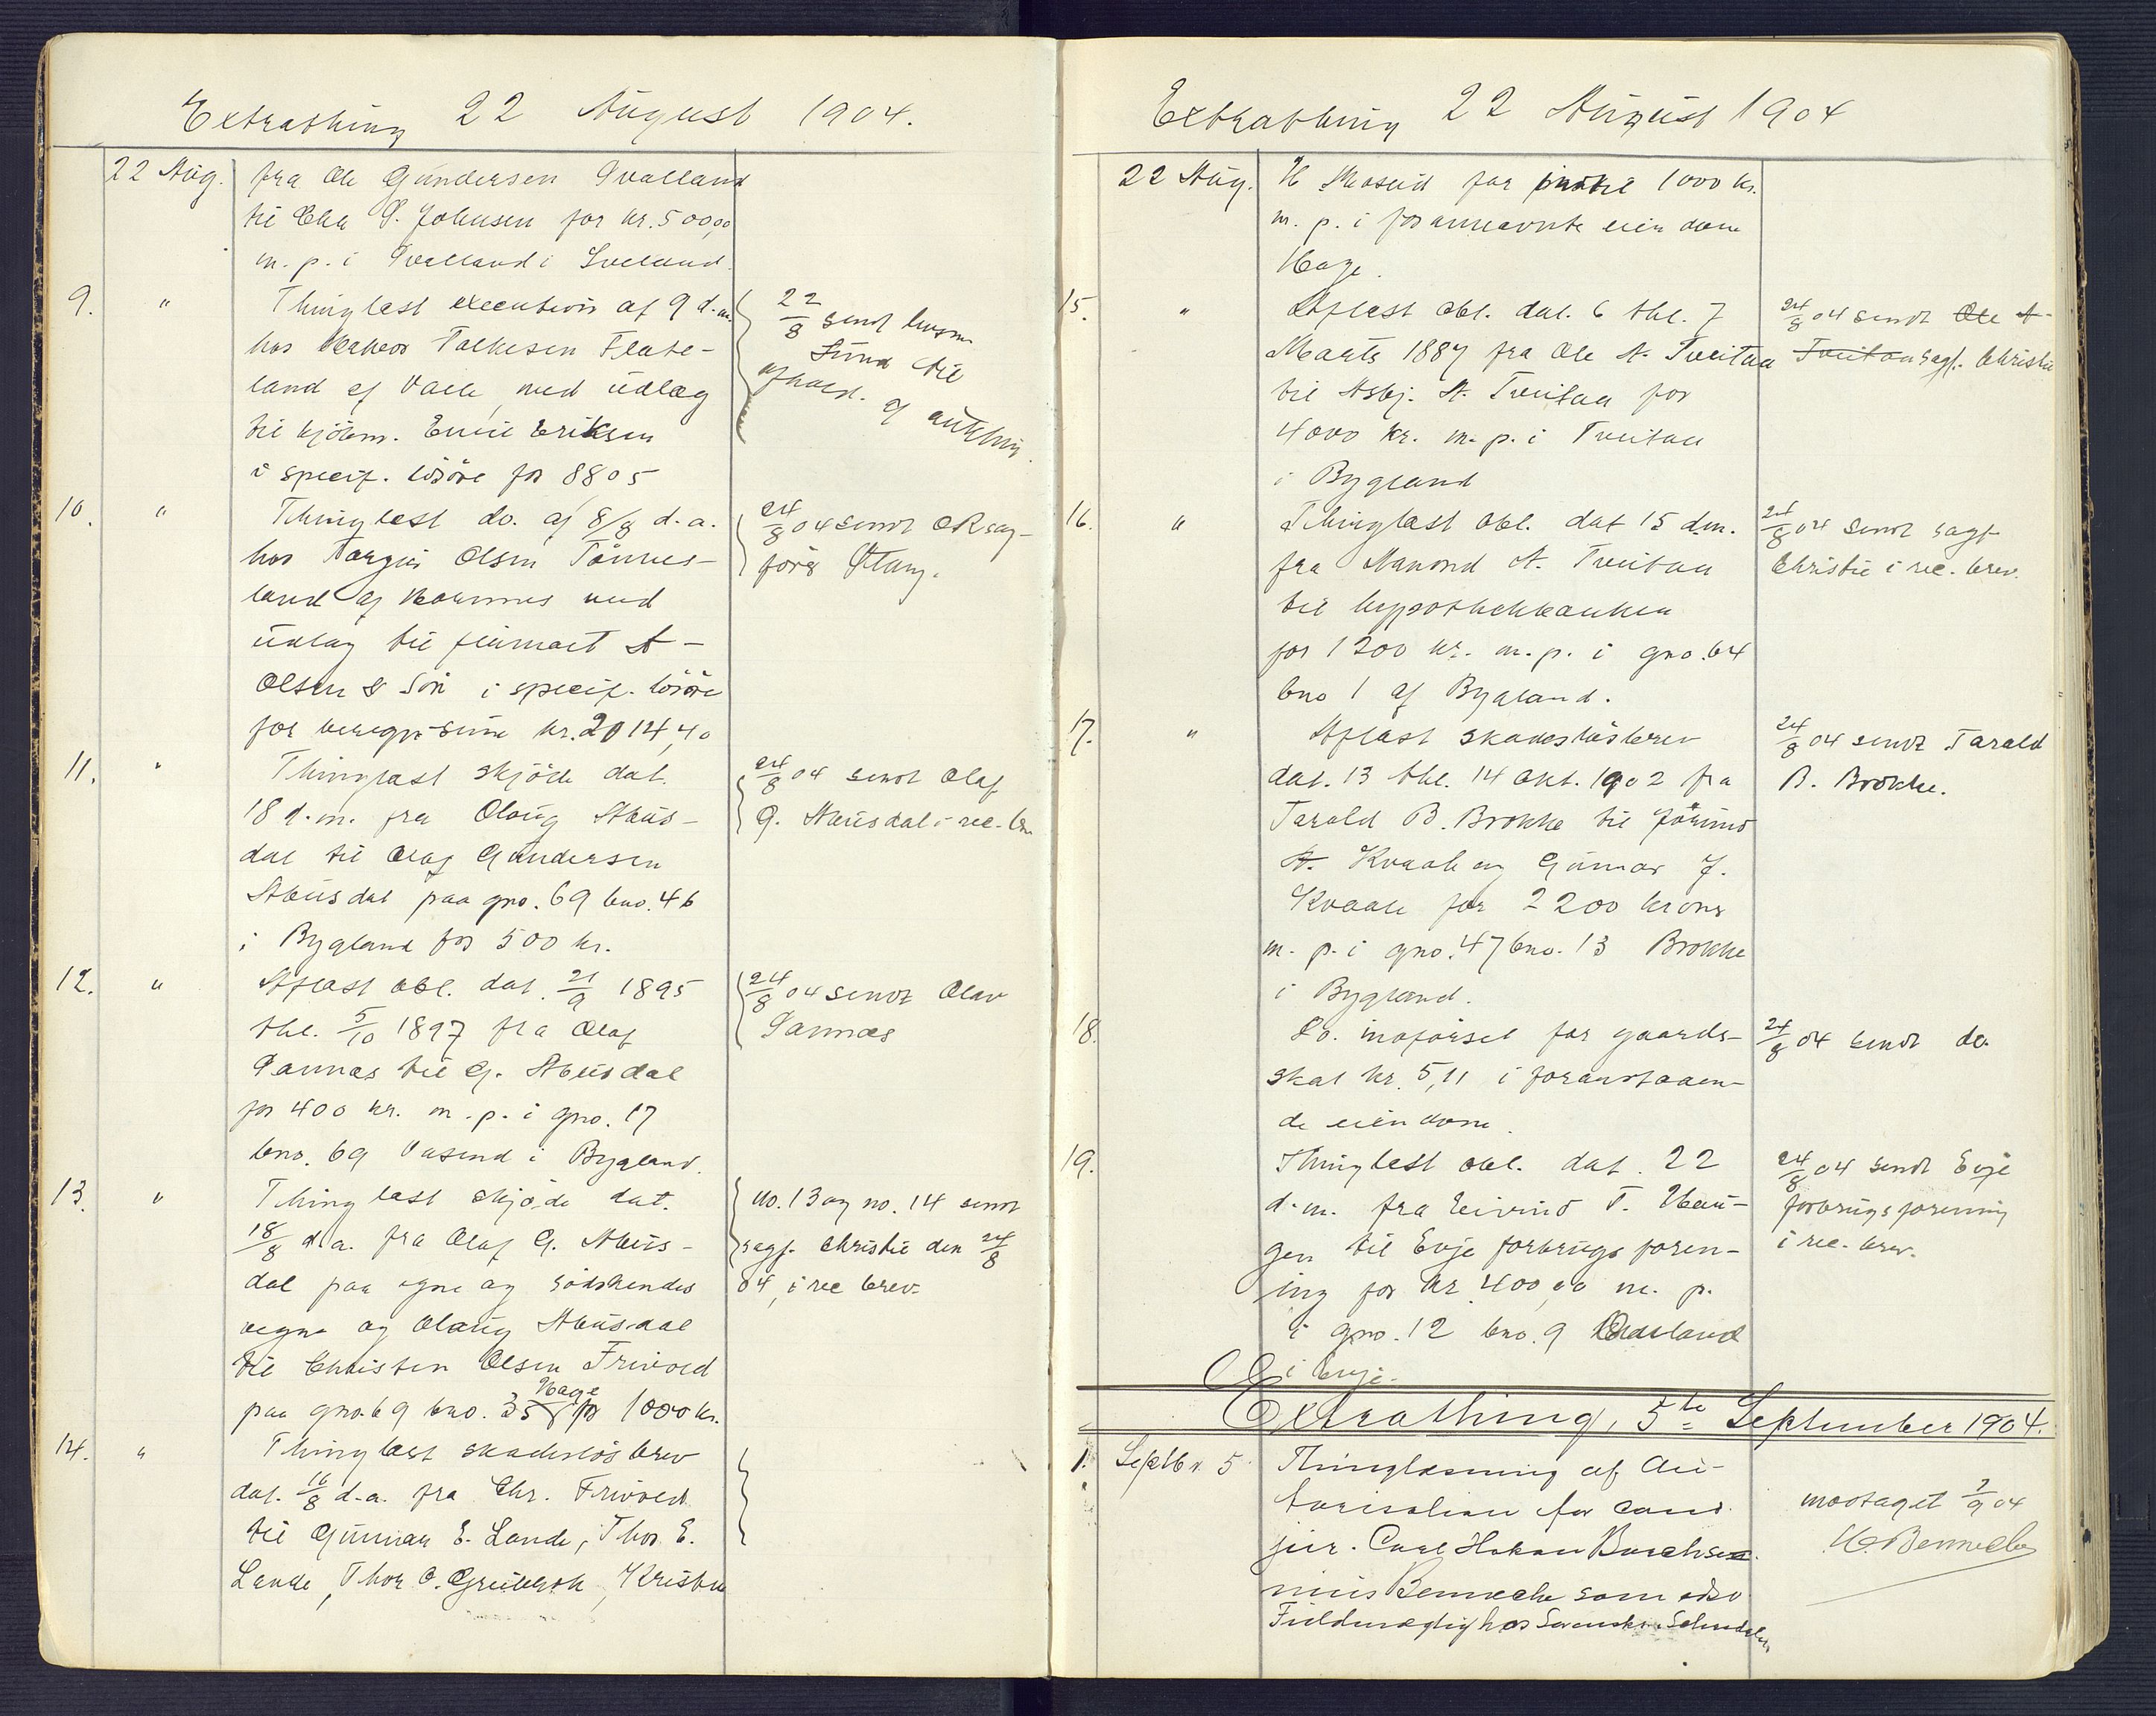 Extrathing 22 August 1904.
22 Aug. fra Ole Gundersen Ivalland
til Chr. S. Johnsen for kr. 500,00
m. p. i Ivelland i Iveland.
9. " Thinglæst execution af 9 d. m.
hos Halvor Tallefsen Flate-
land af Valle, med udlæg
til kjöbm. Emil Eriksen
i specif. lösöre for 8805
22/8 sendt lensm.
Lund til
afhold. af auktion.
10. " Thinglæst do. af 8/8 d. a.
hos Torgus Olsen Tönnes-
land af Hornnes med
udlæg til firmaet A.
Olsen & Sön i specif. lösöre
for beregn. sum kr. 2014,40
24/8 04 sendt ORsag-
förer Stang.
11. " Thinglæst skjöde dat.
18 d. m. fra Olaug Åbus-
dal til Olaf Gundersen
Åbusdal paa gno. 69 bno. 46
i Bygland for 500 kr.
24/8 04 sendt Olaf
G. Åbusdal i rec. brev
12. " Aflæst obl. dat. 21/9 1895
thl. 5/10 1897 fra Olaf
Sannes til G. Åbusdal
for 400 kr. m. p. i gno. 17
bno. 69 Vasend i Bygland.
24/8 04 sendt Olav
Sannæs
13. " Thinglæst skjöde dat.
18/8 d. a. fra Olaf G. Åbus-
dal paa egne og södskendes
vegne og Olaug Åbusdal
til Christen Olsen Frivold
paa gno. 69 bno. 35 Hage for 1000 kr.
No. 13 og no. 14 sendt
sagf. Christie den 24/8
04, i rec brev.
14. " Thinglæst skadeslösbrev
dat. 16/8 d. a. fra Chr. Frivold
til Gunnar E. Lande, Thor E.
Lande, Thor O. Greibrok, Kristen
Extrathing 22 August 1904
22 Aug. H Moseid for indtil 1000 kr.
m. p. i forannævnte eiendom
Hage.
15. " Aflæst obl. dat. 6 thl. 7
Marts 1887 fra Ole A. Tveitaa
til Asbj. A. Tveitaa for
4000 kr. m. p. i Tveitaa
i Bygland
24/8 04 sendt Ole A.
Tveitaa sagf. Christie
16. " Thinglæst obl. dat 15 dm.
fra Aanond A. Tveitaa
til hypothekbanken
for 1200 kr. m. p. i gno. 64
bno 1 af Bygland.
24/8 04 sendt sagf.
Christie i rec. brev.
17. " Aflæst skadeslösbrev
dat. 13 thl. 14 Okt. 1902 fra
Tarald B. Brokke til Jörund
A. Kvaale og Gunnar J.
Kvaale for 2200 kroner
m. p. i gno. 47 bno. 13 Brokke
i Bygland.
24/8 04 sendt Tarald
B. Brokke.
18. Do. indförsel for gaards-
skat kr. 5,11 i foranstaaen-
de eiendom.
24/8 04 sendt do.
19. Thinglæst obl. dat. 22
d. m. fra Eivind T. Hau-
gen til Evje forbrugsforen-
ing for kr. 400,00 m. p.
i gno. 12 bno. 9
i Evje.
24/8 04 sendt Evje
forbrugsforening
i rec. brev.
Extrathing, 5te September 1904.
1. Septbr. 5 Thinglæsning af Au-
torisation for cand.
jur. Carl Hakon
Bennecke som edsv.
Fuldmægtig hos Sorenskr.
modtaget 7/9 04
Bennecke